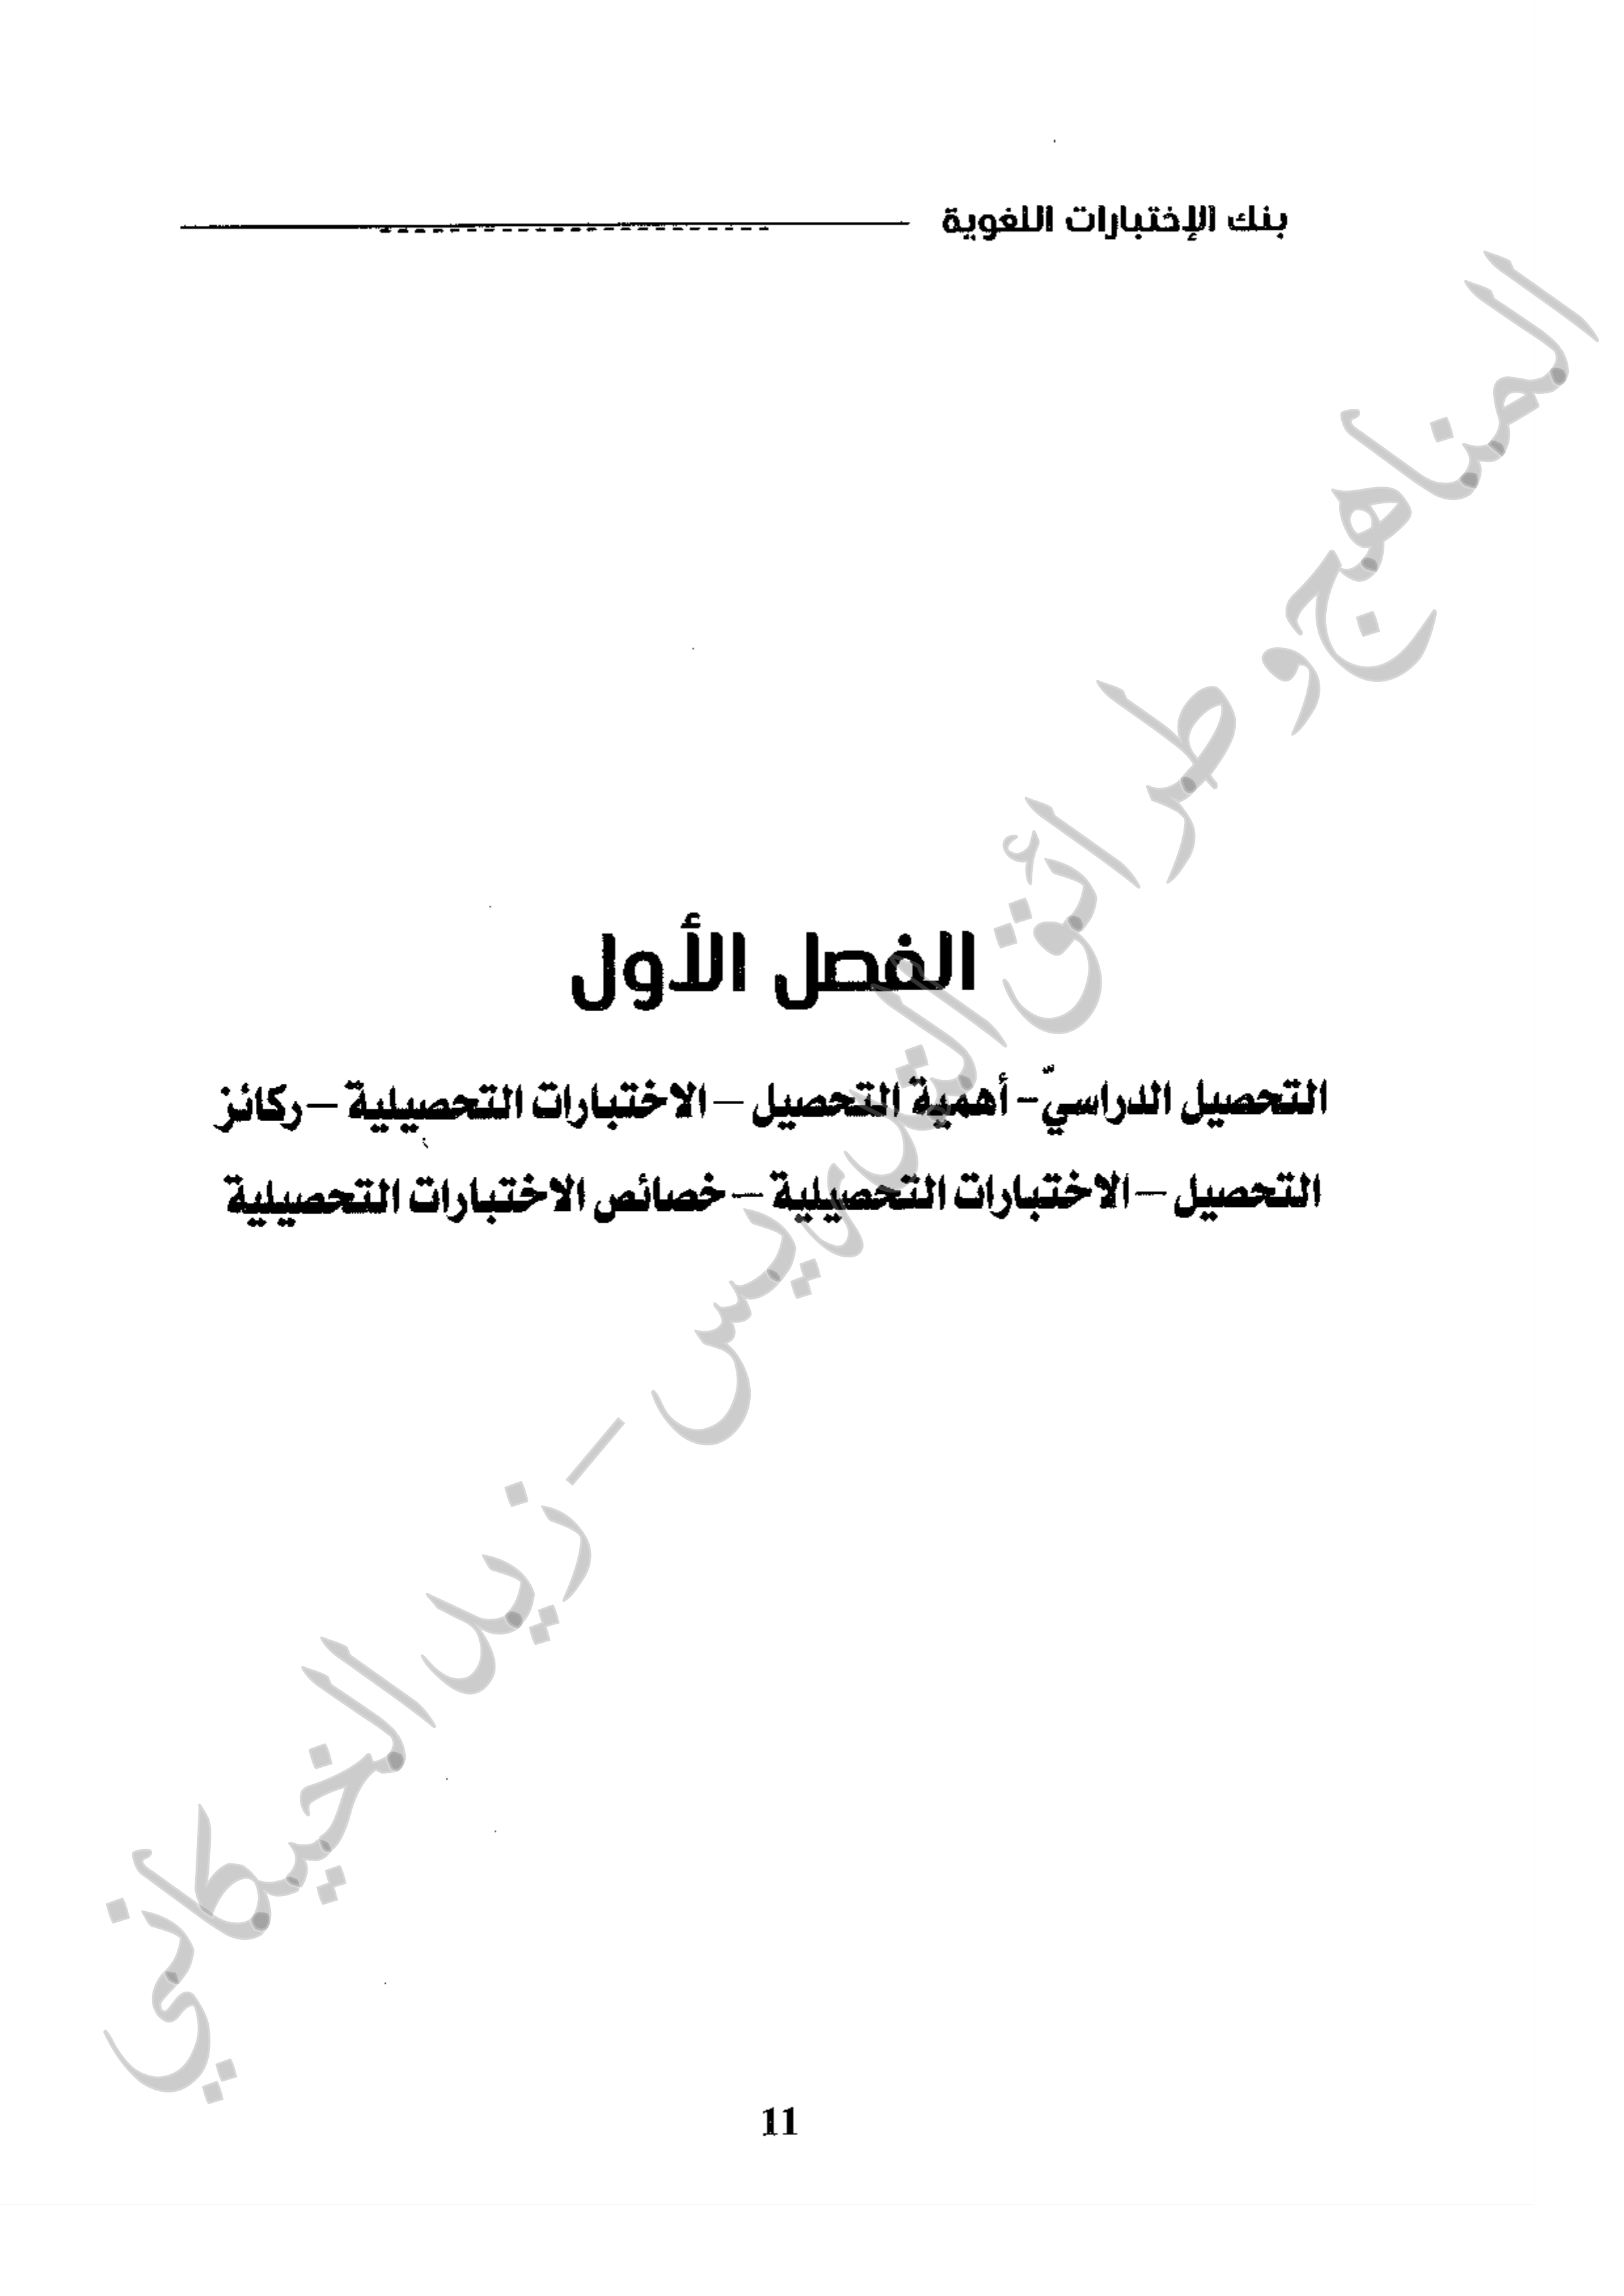 بنك الإختبارات اللغوية
الفصل الأول
التحصيل الدراسيّ – أهمية التحصيل – الاختبارات التحصيلية – ركائز
التحصيل – الاختبارات التحصيلية – خصائص الاختبارات التحصيلية
المناهج وطرائق التدريس - زيد الخيكاني
11